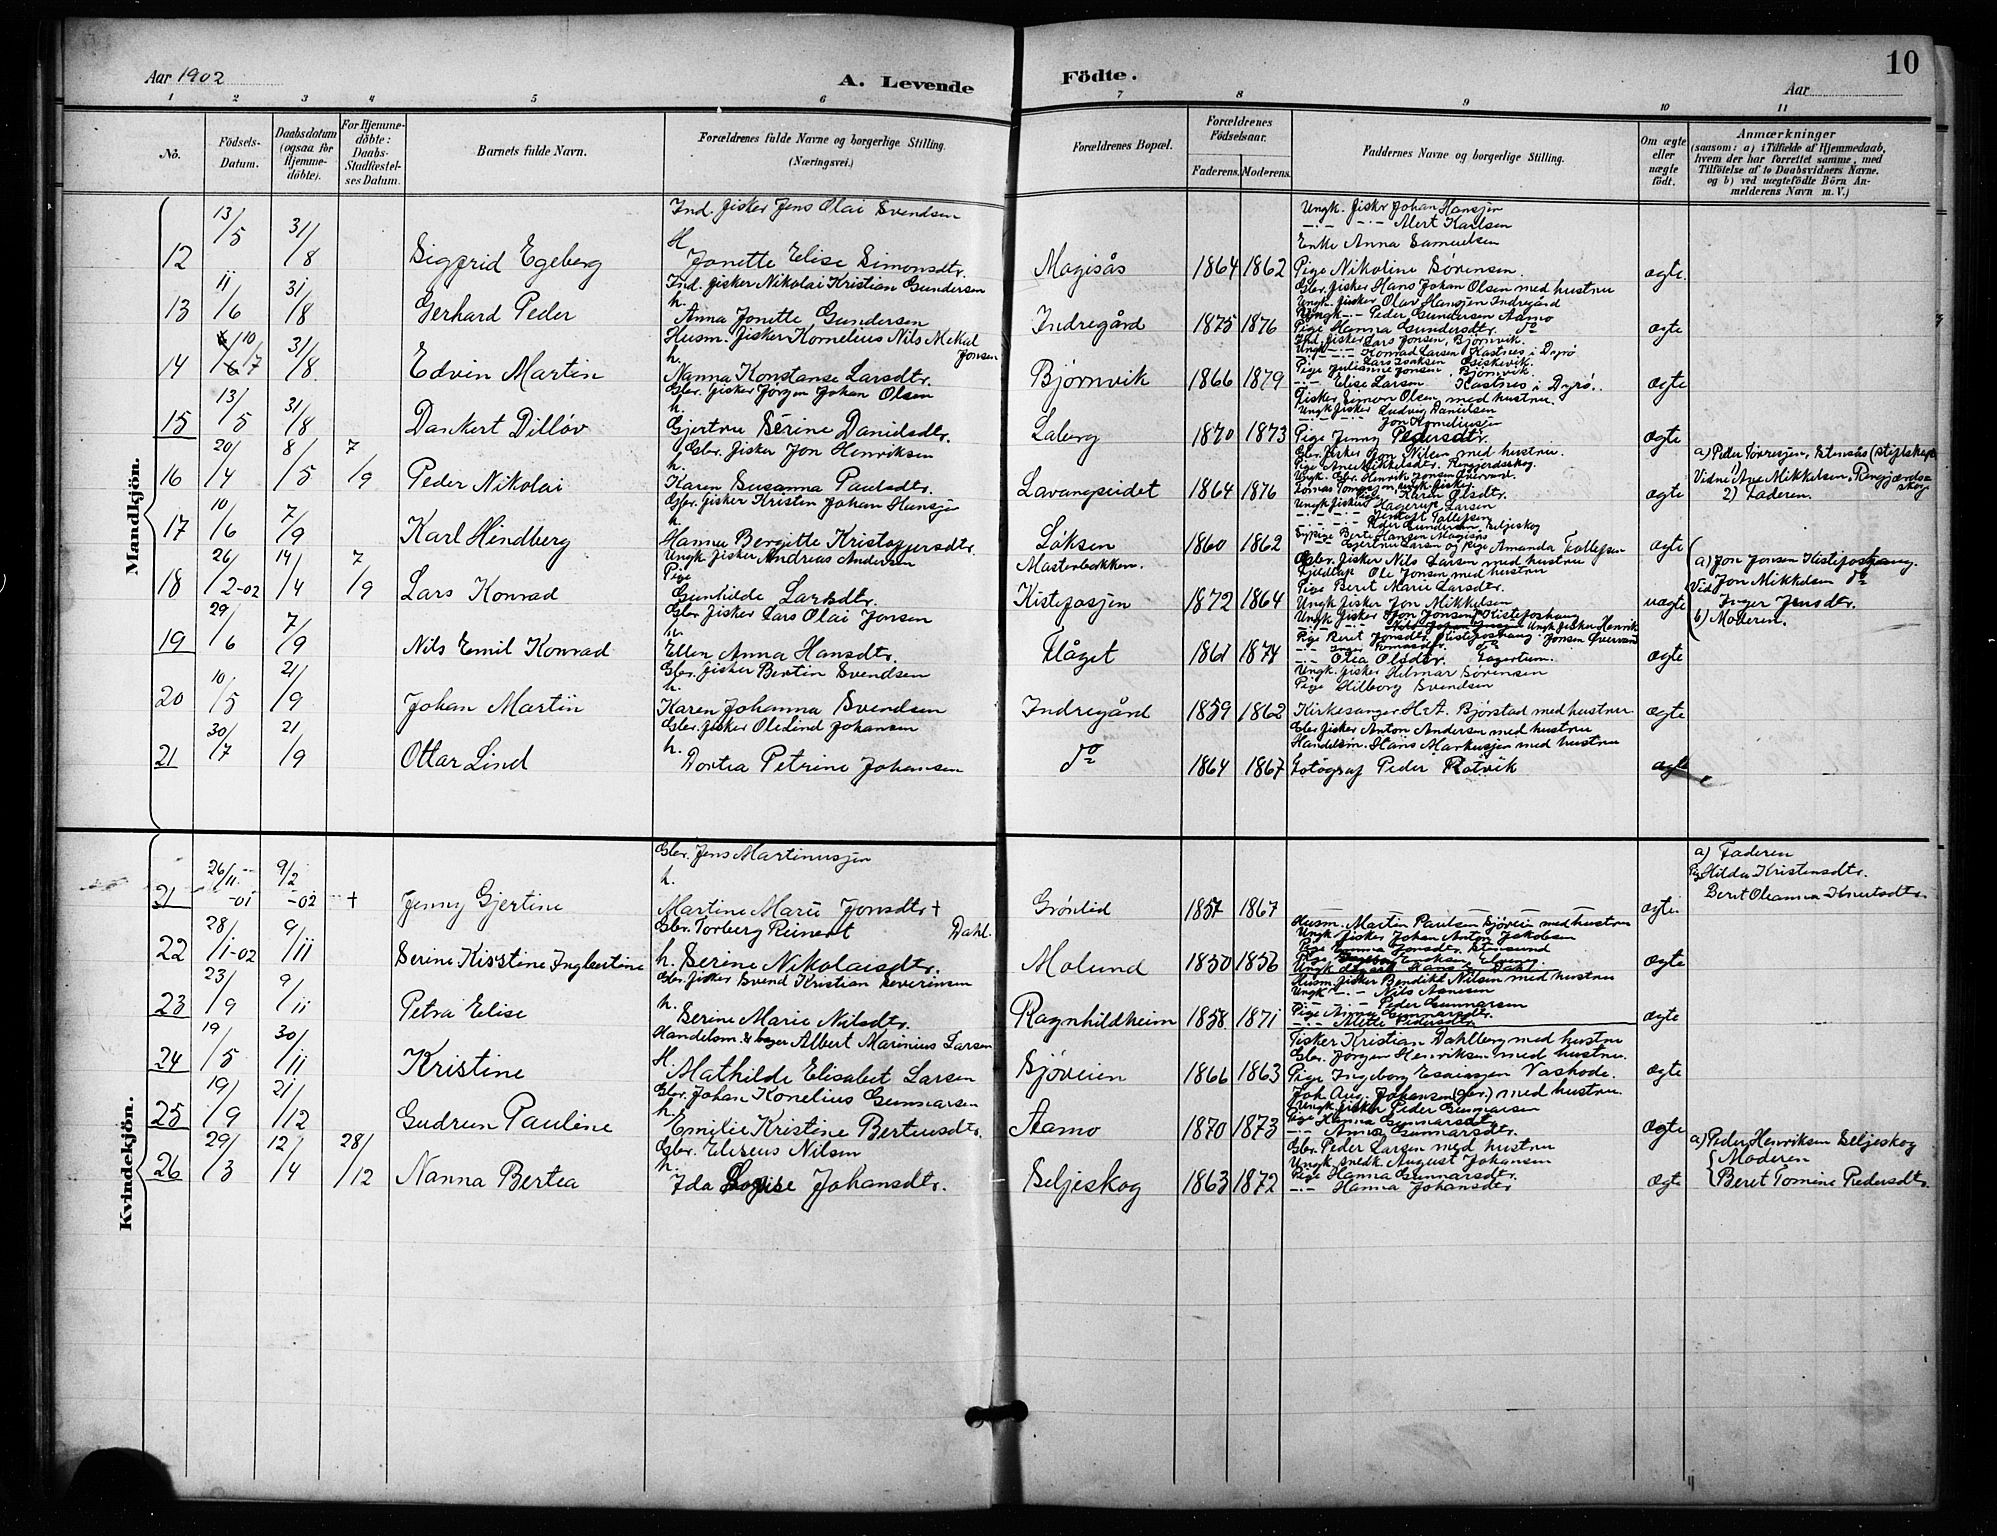 Aar 1902
A. Levende
Födte.
Aar
10
1 2 3 4 5 6 7 8 9 10 11
No.
Födsels-Datum.
Daabsdatum (ogsaa for Hjemmedöbte).
For Hjemmedöbte: Daabs-Stadfæstelses Datum.
Barnets fulde Navn.
Forældrenes fulde Navne og borgerlige Stilling. (Næringsvei.)
Forældrenes Bopæl.
Forældrenes Födselsaar.
Faderens. Moderens.
Faddernes Navne og borgerlige Stilling.
Om ægte eller uægte födt.
Anmærkninger
(saasom: a) i Tilfælde af Hjemmedaab,
hvem der har forrettet samme, med
Tilföielse af to Daabsvidners Navne.
og b) ved uægtefödte Börn An-
melderens Navn m. V.)
Mandkjön.
Ind. fisker Jens Olai Svendsen
Ungk. fiskr Johan Hansjen
-"- Alert Karlsen
Enke Anna Samuelsen
12 13/5 31/8 Sigfrid Egeberg H Jonette Elise Simonsdtr. Magisås 1864 1862 Pige Nikoline Sørensen. ægte.
Ind. fisker Nikolai Kristian Gundersen
Gbr. fisker Hans Johan Olsen med hustru
Ungk. fisker Olav Hansjen Indregård
Ungk -"- Peder Gundersen Aamo
13 11/6 31/8 Gerhard Peder h. Anna Jonette Gundersen Indregård 1875 1876 Pige Hanna Gundersdtr. do ægte
Husm. fisker Kornelius Nils Mekal Jonsen
Ind. fisker Lars Jonsen, Bjørnvik.
Ungk -"- Konrad Larsen Kastnes i Dyrø
Pige Julianne Jonsen, Bjørnvik.
14 10/7 31/8 Edvin Martin h. Nanna Konstanse Larsdtr. Bjørnvik 1866 1879 -"- Elise Larsen Kastnes i Dyrø. ægte
Gbr. fisker Jørgen Johan Olsen
Fisker Simon Olsen med hustru.
Ungk fisker Ludvig Danielsen
-"- Jon Korneliusjen
15 13/5 31/8 Dankert Dilløv h. Gjertru Serine Danielsdtr. Laberg 1870 1873 Pige Jenny Pedersdtr. ægte
Gbr. fisker Jon Henriksen
Gbr. fisker Jon Nilsen med hustru.
16 20/4 8/5 7/9 Peder Nikolai h. Karen Susanna Paulsdtr. Lavangseidet 1864 1876 Karen Olsdtr. ægte
a) Peder Torresjen, Stensås (stiftskap
Vidne 1) Ane Mikkelsen, Ringjærdsskog
2) Faderen.
Gbr. fisker Kristin Johan Hansjen
Ungk fisker Hagerup Larsen
17 10/6 7/9 Karl Hindberg h. Hanna Bergitte Kristoffersdtr. Løksen 1860 1862 ægte
Ungk. fisker Andreas Andersen
Masterbakken.
Gbr. fisker Nils Larsen med hustru
Fjeldlap Ole Jonsen med hustru
Pige Beret Marie Larsdtr.
18 26/2-02 14/4 7/9 Lars Konrad Pige Gunhilde Larsdtr. Kistefosjen 1872 1864 Ungk fisker Jon Mikkelsen uægte
a) Jon Jonsen Kistefosshaug.
Vid Jon Mikkelsen do
Inger Jensdtr.
b) Moderen.
Gbr fisker Lars Olai Jonsen
19 29/6 7/9 Nils Emil Konrad h. Ellen Anna Hansdtr. Flåget 1861 1874 -"- Olea Olsdtr. Fagertun. ægte
Gbr. fisker Bertin Svendsen
Ungk. fisker Hilmar Sørensen
Pige Hilborg Svendsen
20 10/5 21/9 Johan Martin h. Karen Johanna Svendsen Indregård 1859 1862 Kirkesanger H.A. Bjørstad med hustru. ægte
Gbr. fisker Ole Lind Johansen
Gbr fisker Anton Andersen med hustru
Handelsm. Hans Markusjen med hustru
21 30/7 21/9 Ottar Lind h. Dortea Petrine Johansen do 1864 1867 Fotograf Peder Rotvik ægte
Kvindekjön.
Gbr. Jens Martinussjen
21 26/11-01 9/2-02 + Jenny Gjertine h. Martine Marie Jonsdtr + Grønlid 1857 1867 ægte
a) Faderen
Pig Hilda Kristensdtr.
Beret Oleanna Knutsdtr.
Gbr. Torberg Reinert Dahl.
Husm. Martin Paulsen Sjøveien med hustru
Ungk fisker Johan Anton Jakobsen
Pige Emma Jonsdtr. Stensund
22 28/1-02 9/11 Serine Kirstine Ingbertine h. Serine Nikolaisdtr. Molund 1850 1856 ægte
Gbr. fisker Svend Kristian Severinsen
Husm. fisker Bendikt Nilsen med hustru
Ungk -"- Nils Asnesen
-"- Peder Gunnarsen
Pige Anna Gunnarsdtr.
23 23/9 9/11 Petra Elise h. Serine Marie Nilsdtr. Ragnhildheim 1858 1871 -"- Alette Pedersdtr ægte
Handelsm. & bager Albert Marinius Larsen
Fisker Kristian Dahlberg med hustru
Gbr. Jørgen Henriksen med hustru.
24 19/5 30/11 Kristine H. Mathilde Elisabet Larsen Sjøveien 1866 1863 Pige Ingeborg Esaiasjen Vashode. ægte
Gbr. Johan Kornelius Gunnarsen
Joh. Aug. Johansen (gbr.) med hustru.
Ungk. fisker Peder Gunnarsen
Pige Hanna Gunnarsdtr.
25 19/9 21/12 Gudrun Pauline h. Emilie Kristine Berteusdtr. Aamo 1870 1873 -"- Anna Gunnarsdtr. ægte
Gbr. Eliseus Nilsen
Gbr. Peder Larsen med hustru
Ungk. snedk. August Johansen
Pige Hanna Gunnarsdtr.
26 29/3 12/4 28/12 Nanna Bertea h. Ida Lovise Johansdtr. Seljeskog 1863 1872 -"- Hanna Johansdtr ægte
a) Peder Henriksen Seljeskog
Moderen
Beret Tomine Pedersdtr.